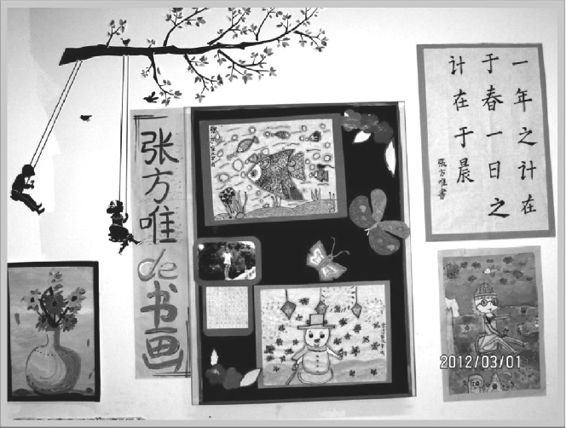 张方唯de书画
一年之计在
于春一日之
计在于晨
张方唯书
2012/03/01